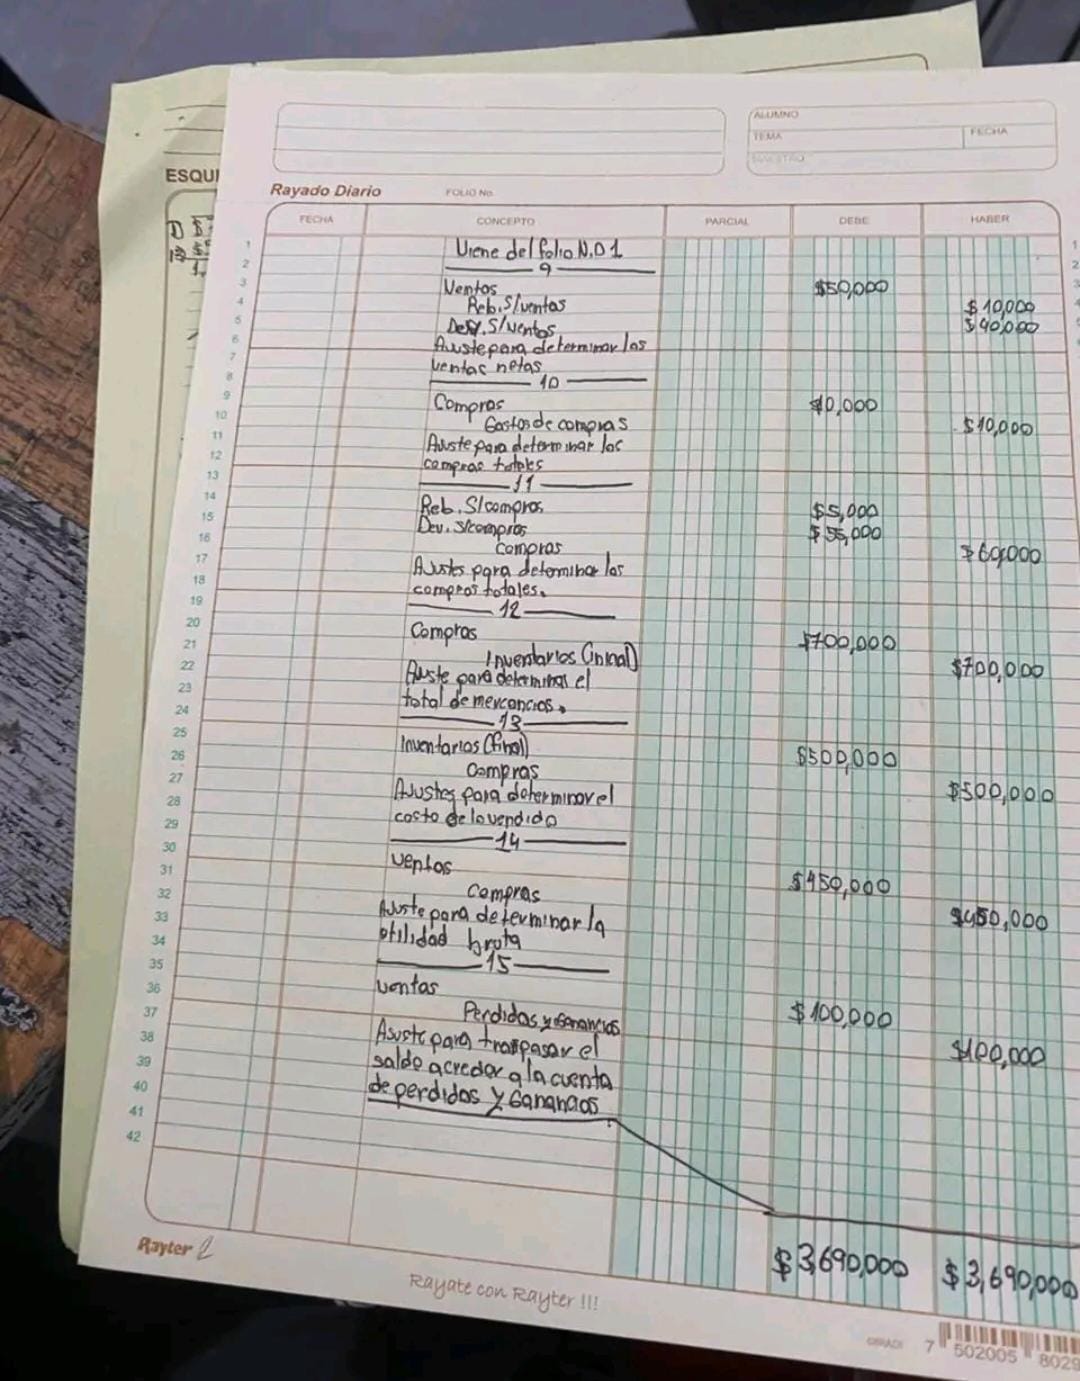 ALUMNO
TEMA
FECHA
MAESTRO
ESQUE
Rayado Diario
FOLIO No.
FECHA CONCEPTO PARCIAL DEBE HABER
1 Viene del folio N.D 1 1
2 9 2
3 Ventas $50,000 3
4 Reb. S/ventas $10,000
5 Dev. S/ventas $40,000
6 Ajuste para determinar las
7 ventas netas
8 10
9 Compras $10,000
10 Gastos de compras $10,000
11 Ajuste para determinar las
12 compras totales
13 11
14 Reb. S/compras $5,000
15 Dev. s/compras $55,000
16 compras $60,000
17 Ajustes para determinar las
18 compras totales.
19 12
20 Compras $700,000
21 Inventarios (inicial) $700,000
22 Ajuste para determinar el
23 total de mercancias.
24 13
25 Inventarios (final) $500,000
26 Compras $500,000
27 Ajustes para determinar el
28 costo de lo vendido
29 14
30 ventas $450,000
31 Compras $450,000
32 Ajuste para determinar la
33 utilidad bruta
34 15
35 ventas $100,000
36 Perdidas y Ganancias $100,000
37 Ajuste para traspasar el
38 saldo acredor a la cuenta
39 de perdidas y Ganancias
40
41
42
$3,690,000 $3,690,000
Rayter 2
Rayate con Rayter !!!
7 502005 8029